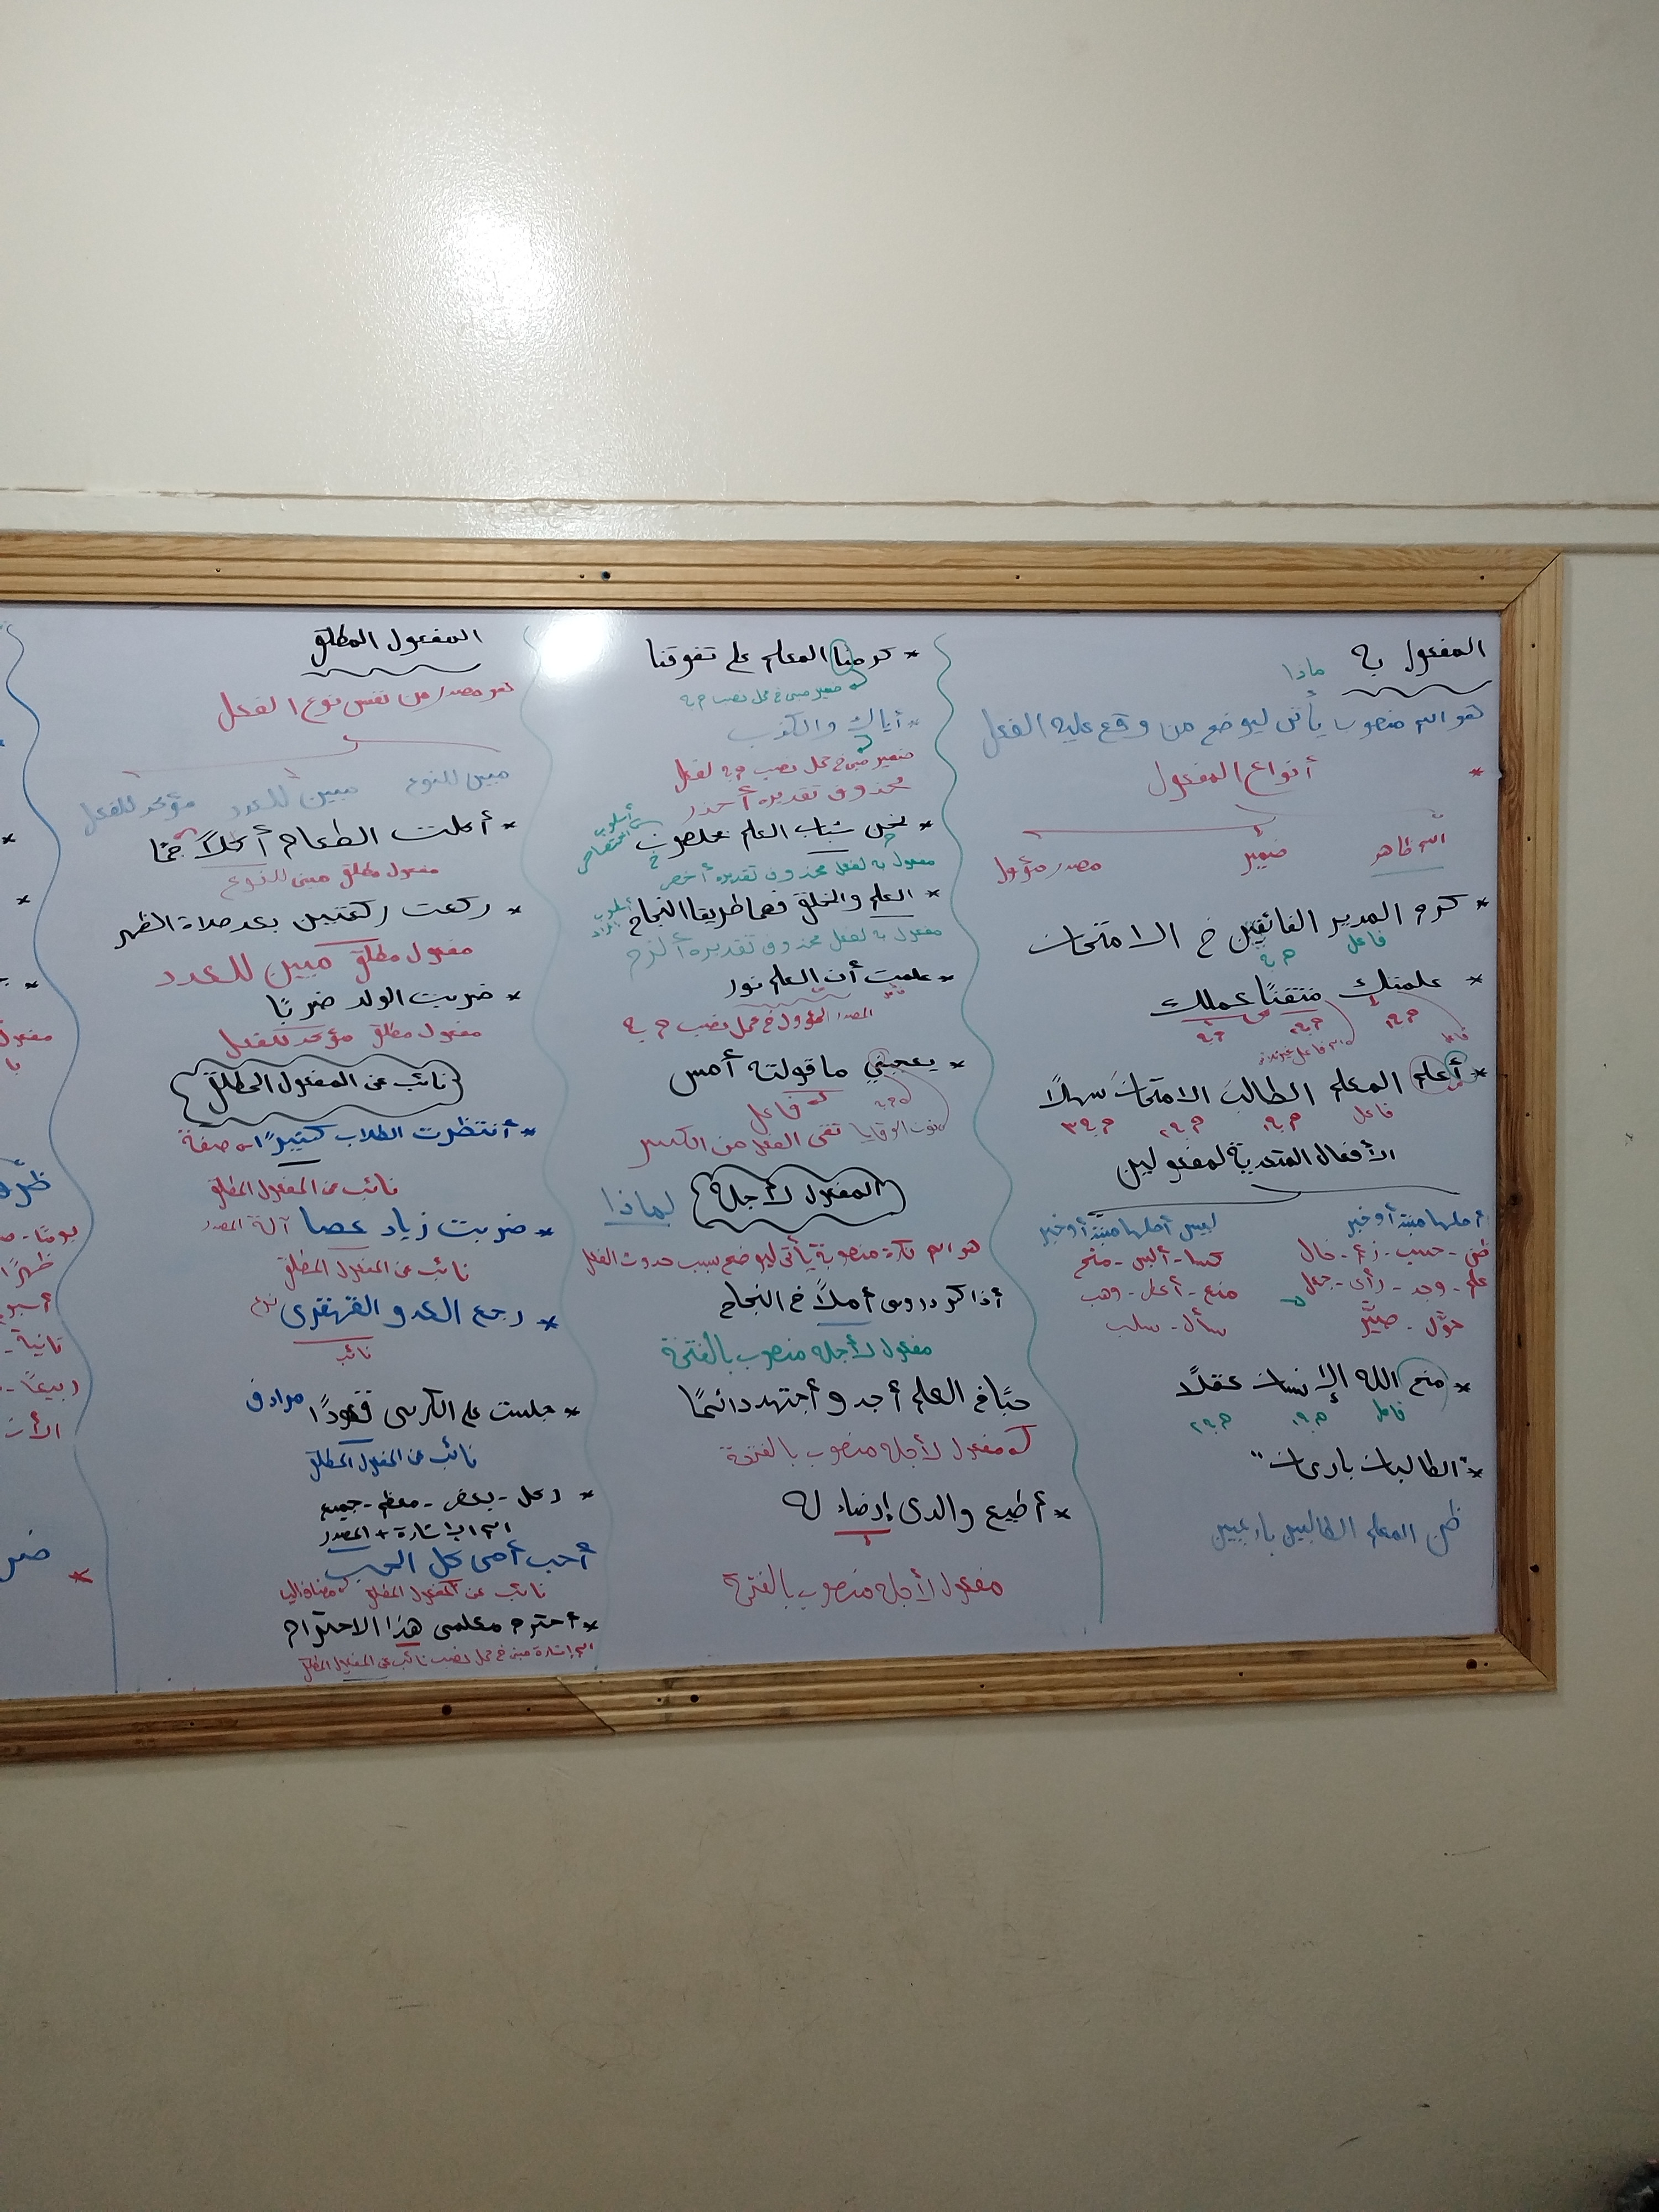 المفعول به
ماذا
هو اسم منصوب يأتى ليوضح من وقع عليه الفعل
* أنواع المفعول
اسم ظاهر
ضمير
مصدر مؤول
* كرم المدير الفائقين فى الامتحان
فاعل
م به
* علمتك متقنًا عملك
م به١
م به٢
م به
* أعلم المعلم الطالبَ الامتحانَ سهلًا
فاعل
م به١
م به٢
م به٣
الأفعال المتعدية لمفعولين
أصلها مبتدأ وخبر
ليس أصلها مبتدأ وخبر
ظن - حسب - زعم - خال
علم - وجد - رأى - جعل
حوّل - صيّر
كسا - ألبس - منح
منع - أعطى - وهب
سأل - سلب
* منح الله الإنسان عقلًا
فاعل
م به١
م به٢
* "الطالبات بارعات"
ظن المعلم الطالبين بارعيين
* كرمنا المعلم على تفوقنا
ضمير مبنى فى محل نصب م به
* أياك والكذب
ضمير مبنى فى محل نصب م به لفعل
محذوف تقديره أحذر
* نحن شباب العلم مخلصون
أسلوب اختصاص
مفعول به لفعل محذوف تقديره أخص
* العلم والخلق فهما طريقا النجاح
مفعول به لفعل محذوف تقديره ألزم
* علمت أن العلم نور
المصدر المؤول فى محل نصب م به
* يعجبني ما قولته أمس
م به
فاعل
نون الوقاية تقى الفعل من الكسر
المفعول لأجله
لماذا
هو اسم نكرة منصوبة يأتى ليوضح سبب حدوث الفعل
أذاكر دروسى أملًا فى النجاح
مفعول لأجله منصوب بالفتحة
حبًا فى العلم أجد وأجتهد دائمًا
مفعول لأجله منصوب بالفتحة
* أطيع والدى إرضاء له
مفعول لأجله منصوب بالفتحة
المفعول المطلق
هو مصدر من نفس نوع الفعل
مبين للنوع
مبين للعدد
مؤكد للفعل
* أكلت الطعام أكلًا جمًا
مفعول مطلق مبين للنوع
* ركعت ركعتين بعد صلاة الظهر
مفعول مطلق مبين للعدد
* ضربت الولد ضربًا
مفعول مطلق مؤكد للفعل
نائب عن المفعول المطلق
* أنتظرت الطلاب كثيرًا صفة
نائب عن المفعول المطلق
* ضربت زياد عصا آلة المصدر
نائب عن المفعول المطلق
* رجع العدو القهقرى نوع
نائب
* جلست على الكرسى قعودًا مرادف
نائب عن المفعول المطلق
* كل - بعض - معظم - جميع
اسم الإشارة + المصدر
أحب أمى كل الحب
نائب عن المفعول المطلق مضاف إليه
* أحترم معلمى هذا الاحترام
اسم إشارة مبنى فى محل نصب نائب عن المفعول المطلق